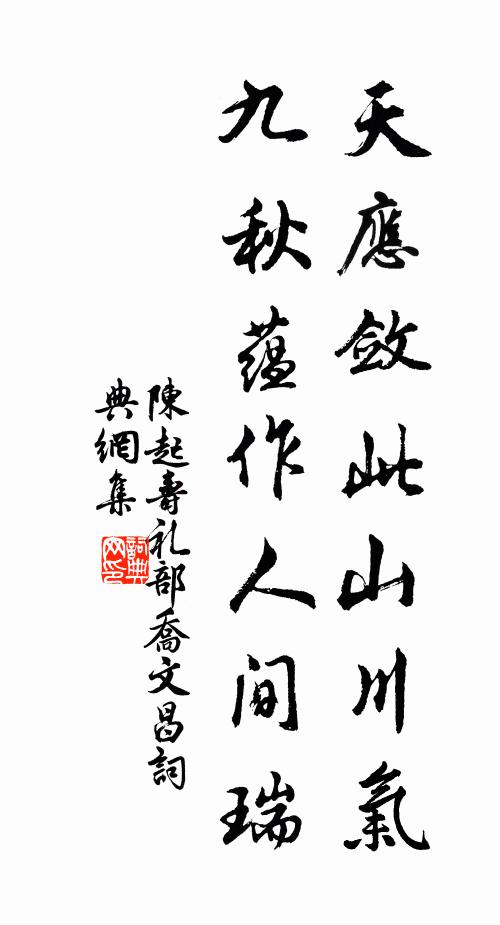 天應斂此山川氣
九秋蘊作人間瑞
陳起壽礼部喬文昌詞
典網集
詞典
网印